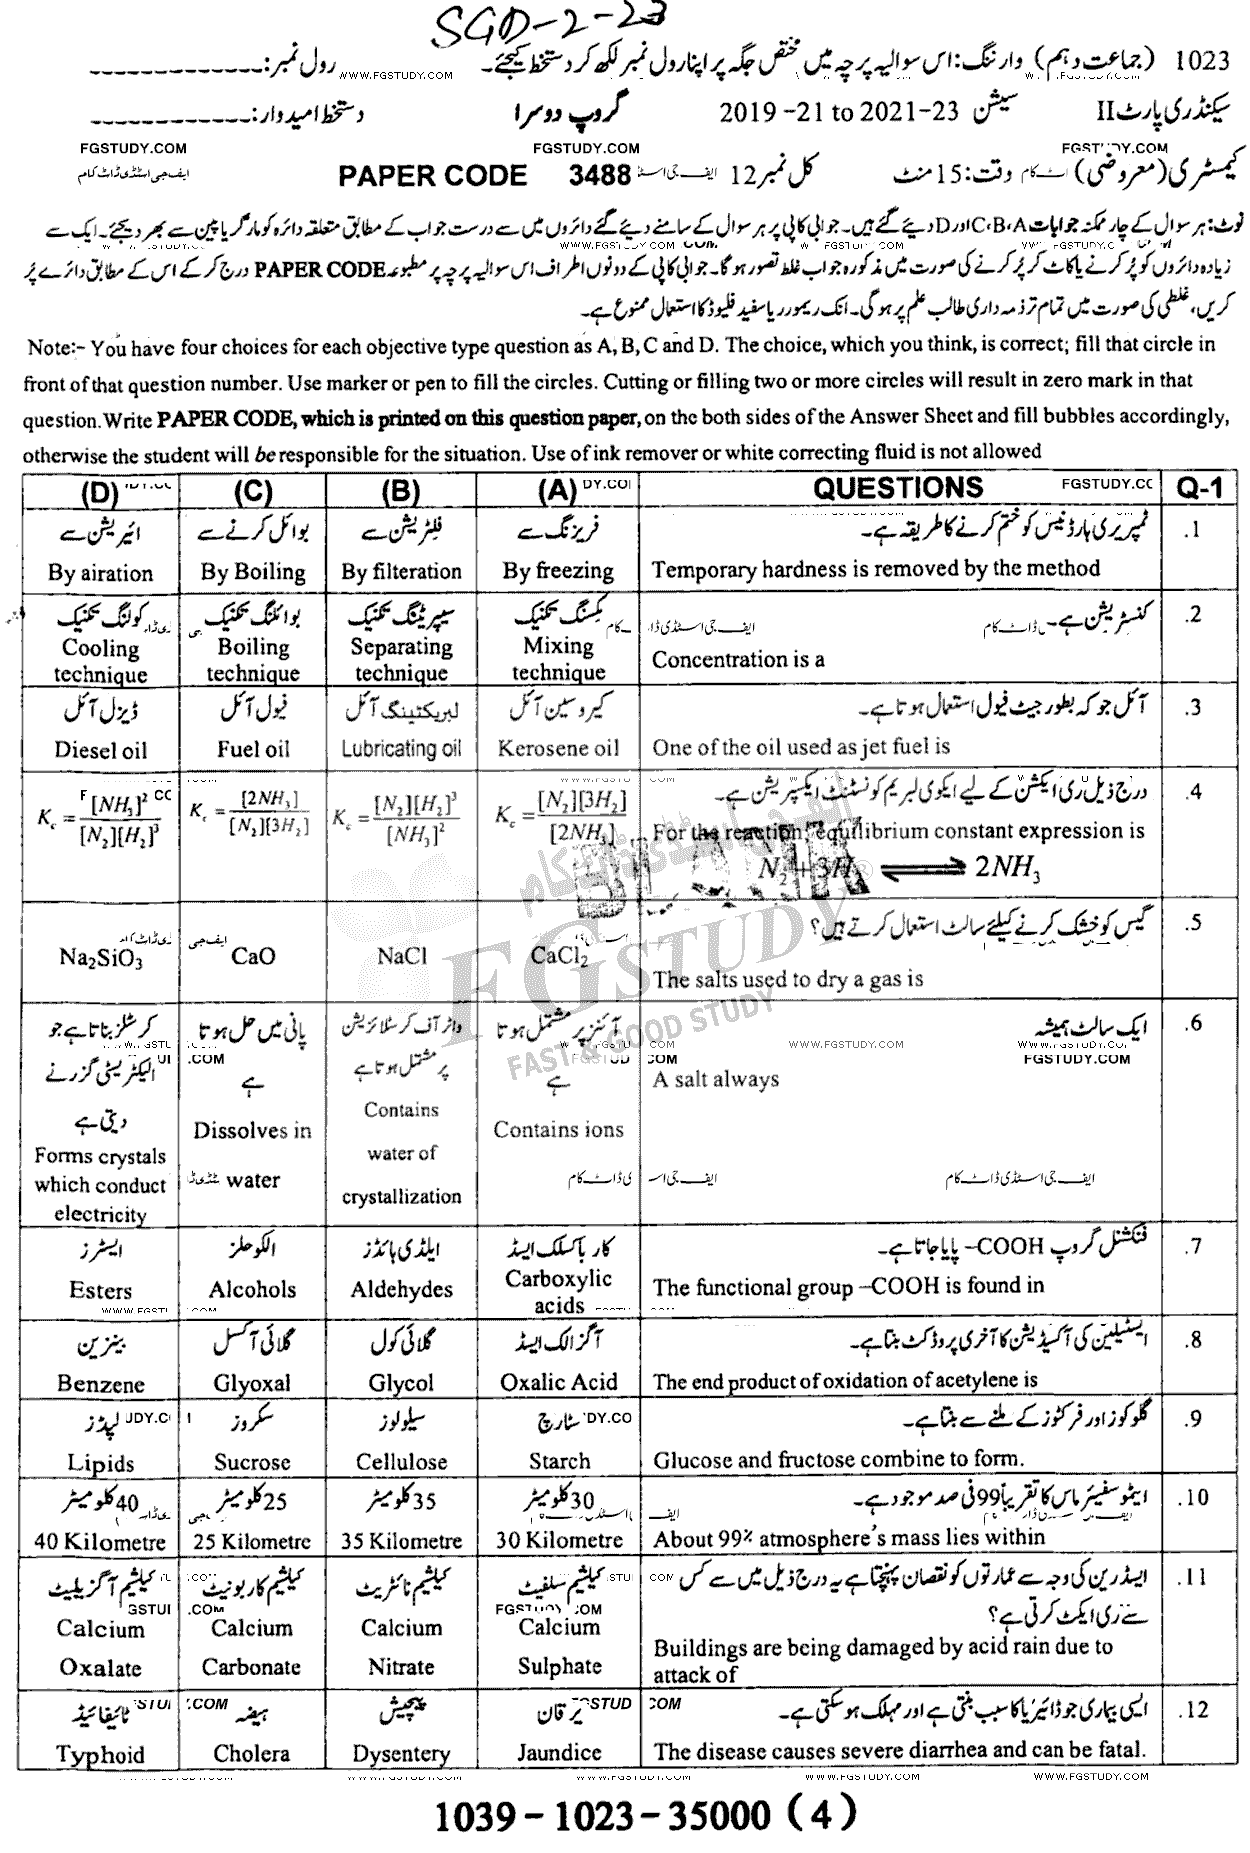 SGD-2-23
1023 (جماعت دہم) وارننگ: اس سوالیہ پرچہ میں مختص جگہ پر اپنا رول نمبر لکھ کر دستخط کیجئے۔ رول نمبر: ____________
WWW.FGSTUDY.COM
سیکنڈری پارٹ II سیشن 2019 -21 to 2021-23 گروپ دوسرا دستخط امیدوار: ____________
FGSTUDY.COM FGSTUDY.COM
کیمسٹری (معروضی) وقت: 15 منٹ کل نمبر 12 PAPER CODE 3488
ایف جی اسٹڈی ڈاٹ کام
نوٹ: ہر سوال کے چار ممکنہ جوابات C، B، A اور D دیئے گئے ہیں۔ جوابی کاپی پر ہر سوال کے سامنے دیئے گئے دائروں میں سے درست جواب کے مطابق متعلقہ دائرہ کو مارکر یا پین سے بھر دیجئے۔ ایک سے
زیادہ دائروں کو پُر کرنے یا کاٹ کر پُر کرنے کی صورت میں مذکورہ جواب غلط تصور ہو گا۔ جوابی کاپی کے دونوں اطراف اس سوالیہ پرچہ پر مطبوعہ PAPER CODE درج کر کے اس کے مطابق دائرے پُر
کریں، غلطی کی صورت میں تمام تر ذمہ داری طالب علم پر ہو گی۔ انک ریمور یا سفید فلیوڈ کا استعمال ممنوع ہے۔
Note:- You have four choices for each objective type question as A, B, C and D. The choice, which you think, is correct; fill that circle in
front of that question number. Use marker or pen to fill the circles. Cutting or filling two or more circles will result in zero mark in that
question. Write PAPER CODE, which is printed on this question paper, on the both sides of the Answer Sheet and fill bubbles accordingly,
otherwise the student will be responsible for the situation. Use of ink remover or white correcting fluid is not allowed
(D) (C) (B) (A) QUESTIONS FGSTUDY.CO Q-1
ائیریشن سے بوائل کرنے سے فلٹریشن سے فریزنگ سے ٹمپریری ہارڈنیس کو ختم کرنے کا طریقہ ہے۔ .1
By airation By Boiling By filteration By freezing Temporary hardness is removed by the method
کولنگ تکنیک بوائلنگ تکنیک سیپریٹنگ تکنیک مکسنگ تکنیک کنسنٹریشن ہے۔ .2
Cooling technique Boiling technique Separating technique Mixing technique Concentration is a
ڈیزل آئل فیول آئل لبریکیٹنگ آئل کیروسین آئل آئل جو کہ بطور جیٹ فیول استعمال ہوتا ہے۔ .3
Diesel oil Fuel oil Lubricating oil Kerosene oil One of the oil used as jet fuel is
درج ذیل ری ایکشن کے لیے ایکوی لبریم کونسٹنٹ ایکسپریشن ہے۔ .4
K_c = [NH₃]²/[N₂][H₂]³ K_c = [2NH₃]/[N₂][3H₂] K_c = [N₂][H₂]³/[NH₃]² K_c = [N₂][3H₂]/[2NH₃] For the reaction, equilibrium constant expression is
N₂ + 3H₂ ⇌ 2NH₃
گیس کو خشک کرنے کیلئے سالٹ استعمال کرتے ہیں؟ .5
Na₂SiO₃ CaO NaCl CaCl₂ The salts used to dry a gas is
FG STUDY
FAST & GOOD STUDY
کرسٹلز بناتا ہے جو الیکٹریسٹی گزرنے دیتی ہے پانی میں حل ہوتا ہے واٹر آف کرسٹلائزیشن پر مشتمل ہوتا ہے آئنز پر مشتمل ہوتا ہے ایک سالٹ ہمیشہ .6
WWW.FGSTUDY.COM
FGSTUDY.COM
Forms crystals which conduct electricity Dissolves in water Contains water of crystallization Contains ions A salt always
ایف جی اسٹڈی ڈاٹ کام
ایسٹرز الکوحلز ایلڈی ہائڈز کاربآکسلک ایسڈ فنکشنل گروپ COOH– پایا جاتا ہے۔ .7
Esters Alcohols Aldehydes Carboxylic acids The functional group –COOH is found in
بینزین گلائی آکسل گلائی کول آگزالک ایسڈ ایسٹیلین کی آکسیڈیشن کا آخری پروڈکٹ بنتا ہے۔ .8
Benzene Glyoxal Glycol Oxalic Acid The end product of oxidation of acetylene is
لپڈز سکروز سیلولوز سٹارچ گلوکوز اور فرکٹوز کے ملنے سے بنتا ہے۔ .9
Lipids Sucrose Cellulose Starch Glucose and fructose combine to form.
40 کلومیٹر 25 کلومیٹر 35 کلومیٹر 30 کلومیٹر ایٹموسفیئر ماس کا تقریباً 99 فی صد موجود ہے۔ .10
40 Kilometre 25 Kilometre 35 Kilometre 30 Kilometre About 99% atmosphere's mass lies within
کیلشیم آگزیلیٹ کیلشیم کاربونیٹ کیلشیم نائٹریٹ کیلشیم سلفیٹ ایسڈ رین کی وجہ سے عمارتوں کو نقصان پہنچتا ہے یہ درج ذیل میں سے کس .11
سے ری ایکٹ کرتی ہے؟
Calcium Oxalate Calcium Carbonate Calcium Nitrate Calcium Sulphate Buildings are being damaged by acid rain due to
attack of
ٹائیفائیڈ ہیضہ پیچش یرقان ایسی بیماری جو ڈائیریا کا سبب بنتی ہے اور مہلک ہو سکتی ہے۔ .12
Typhoid Cholera Dysentery Jaundice The disease causes severe diarrhea and can be fatal.
WWW.FGSTUDY.COM WWW.FGSTUDY.COM WWW.FGSTUDY.COM WWW.FGSTUDY.COM
1039 – 1023 – 35000 (4)